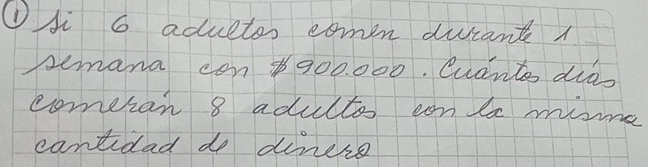 ① Si 6 adultos comen durante 1
semana con $900.000. Cuántos días
comerán 8 adultos con la misma
cantidad de dinero